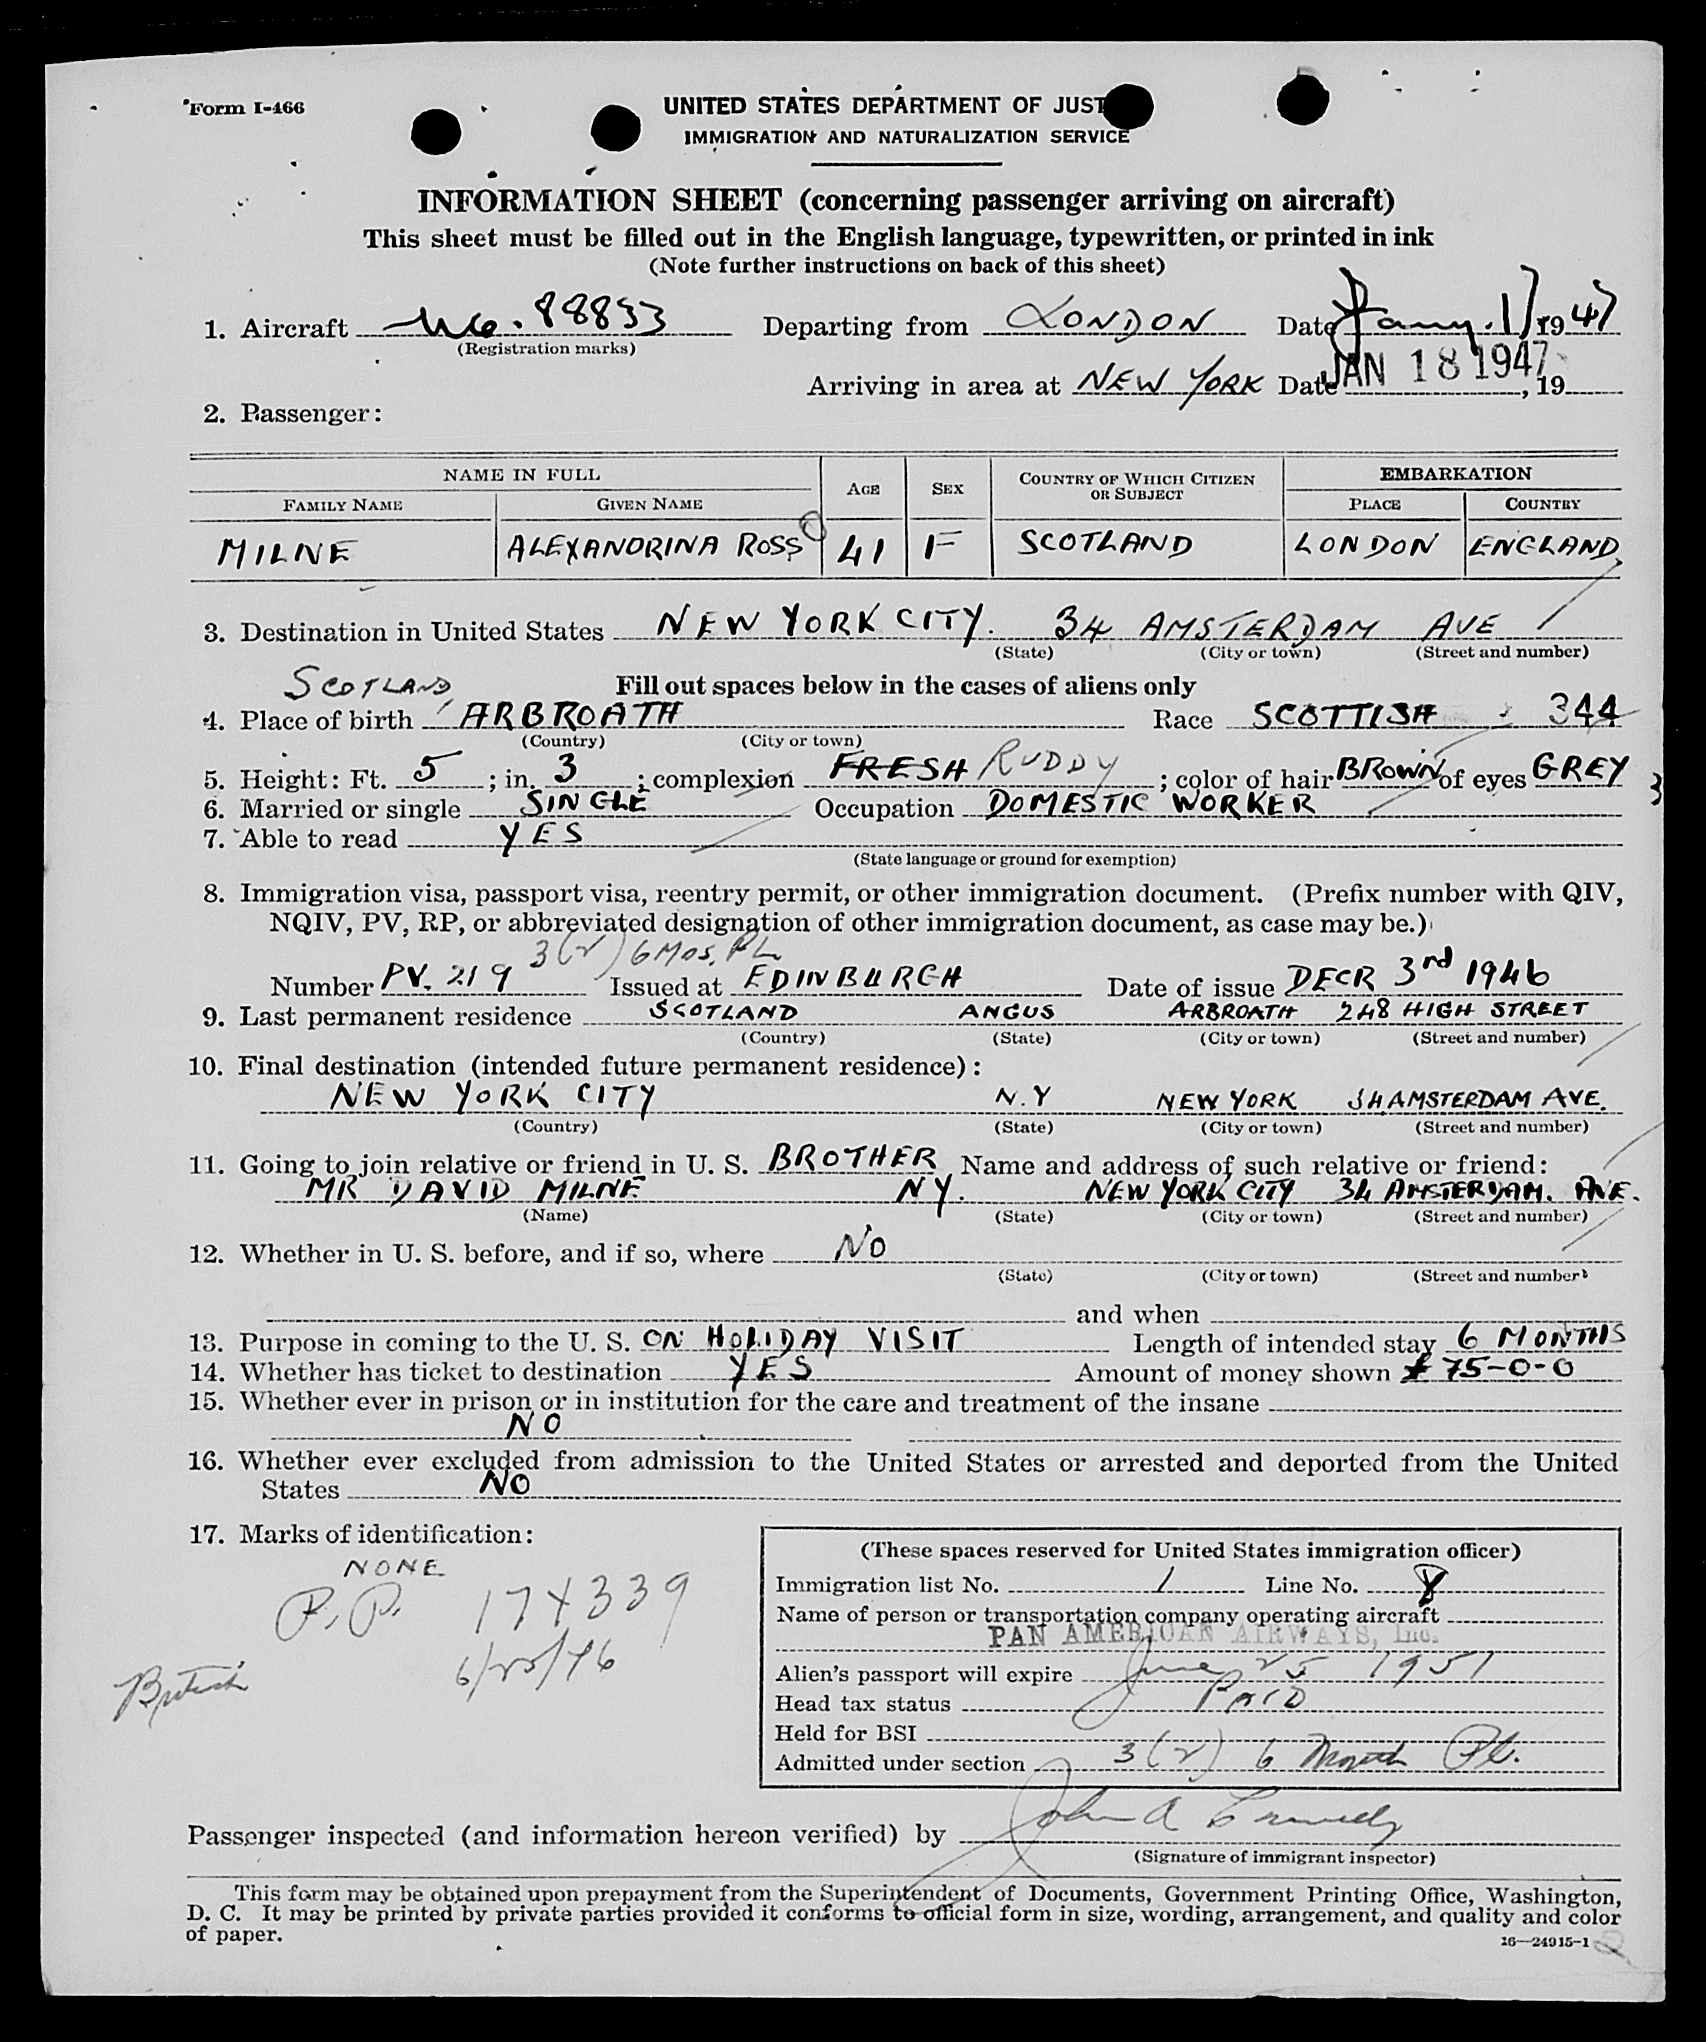 Form I-466
UNITED STATES DEPARTMENT OF JUST
IMMIGRATION AND NATURALIZATION SERVICE
INFORMATION SHEET (concerning passenger arriving on aircraft)
This sheet must be filled out in the English language, typewritten, or printed in ink
(Note further instructions on back of this sheet)
1. Aircraft 88833 Departing from LONDON Date 17 1947
(Registration marks)
Arriving in area at NEW YORK Date JAN 18 1947, 19
2. Passenger:
NAME IN FULL AGE SEX COUNTRY OF WHICH CITIZEN OR SUBJECT EMBARKATION
FAMILY NAME GIVEN NAME PLACE COUNTRY
MILNE ALEXANDRINA ROSS 41 F SCOTLAND LONDON ENGLAND
3. Destination in United States NEW YORK CITY. 34 AMSTERDAM AVE
(State) (City or town) (Street and number)
SCOTLAND Fill out spaces below in the cases of aliens only
4. Place of birth ARBROATH Race SCOTTISH 344
(Country) (City or town)
5. Height: Ft. 5; in. 3; complexion FRESH RUDDY; color of hair BROWN of eyes GREY 3
6. Married or single SINGLE Occupation DOMESTIC WORKER
7. Able to read YES
(State language or ground for exemption)
8. Immigration visa, passport visa, reentry permit, or other immigration document. (Prefix number with QIV,
NQIV, PV, RP, or abbreviated designation of other immigration document, as case may be.)
3(2) 6 MOS. PL
Number PV. 219 Issued at EDINBURGH Date of issue DECR 3rd 1946
9. Last permanent residence SCOTLAND ANGUS ARBROATH 248 HIGH STREET
(Country) (State) (City or town) (Street and number)
10. Final destination (intended future permanent residence):
NEW YORK CITY N.Y NEW YORK 34 AMSTERDAM AVE.
(Country) (State) (City or town) (Street and number)
11. Going to join relative or friend in U. S. BROTHER Name and address of such relative or friend:
MR DAVID MILNE NY. NEW YORK CITY 34 AMSTERDAM. AVE.
(Name) (State) (City or town) (Street and number)
12. Whether in U. S. before, and if so, where NO
(State) (City or town) (Street and number)
and when
13. Purpose in coming to the U. S. ON HOLIDAY VISIT Length of intended stay 6 MONTHS
14. Whether has ticket to destination YES Amount of money shown £ 75-0-0
15. Whether ever in prison or in institution for the care and treatment of the insane
NO
16. Whether ever excluded from admission to the United States or arrested and deported from the United
States NO
17. Marks of identification:
NONE
P.P. 174339
6/25/46
British
(These spaces reserved for United States immigration officer)
Immigration list No. 1 Line No. 8
Name of person or transportation company operating aircraft
PAN AMERICAN AIRWAYS, Inc.
Alien's passport will expire June 25 1951
Head tax status PAID
Held for BSI
Admitted under section 3(2) 6 Month Pl.
Passenger inspected (and information hereon verified) by John A
(Signature of immigrant inspector)
This form may be obtained upon prepayment from the Superintendent of Documents, Government Printing Office, Washington,
D. C. It may be printed by private parties provided it conforms to official form in size, wording, arrangement, and quality and color
of paper.
16—24915-1